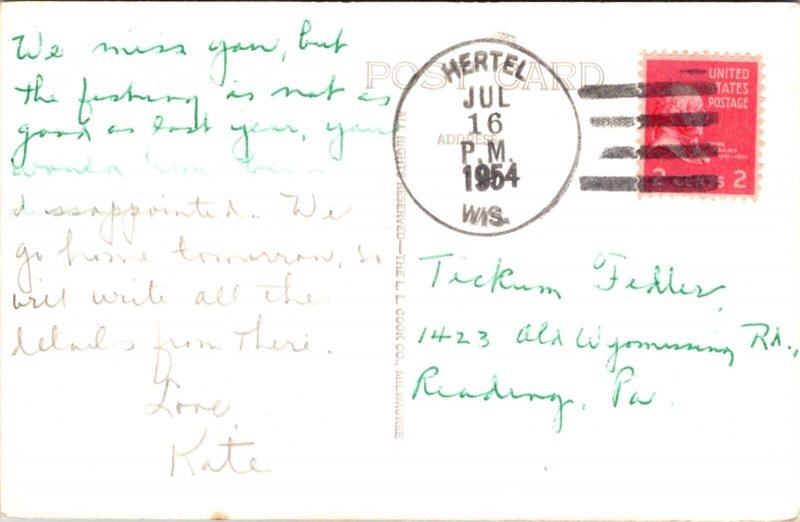 We miss you, but
the fishing is not as
good as last year, you
would have been
disappointed. We
go home tomorrow, so
will write all the
details from there.
Love,
Kate
POST CARD
ADDRESS
HERTEL
JUL
16
P.M.
1954
WIS.
UNITED
STATES
POSTAGE
2 CENTS 2
ALL RIGHTS RESERVED—THE L. L. COOK CO., MILWAUKEE
Tickum Fedler,
1423 Old Wyomissing Rd.,
Reading, Pa.